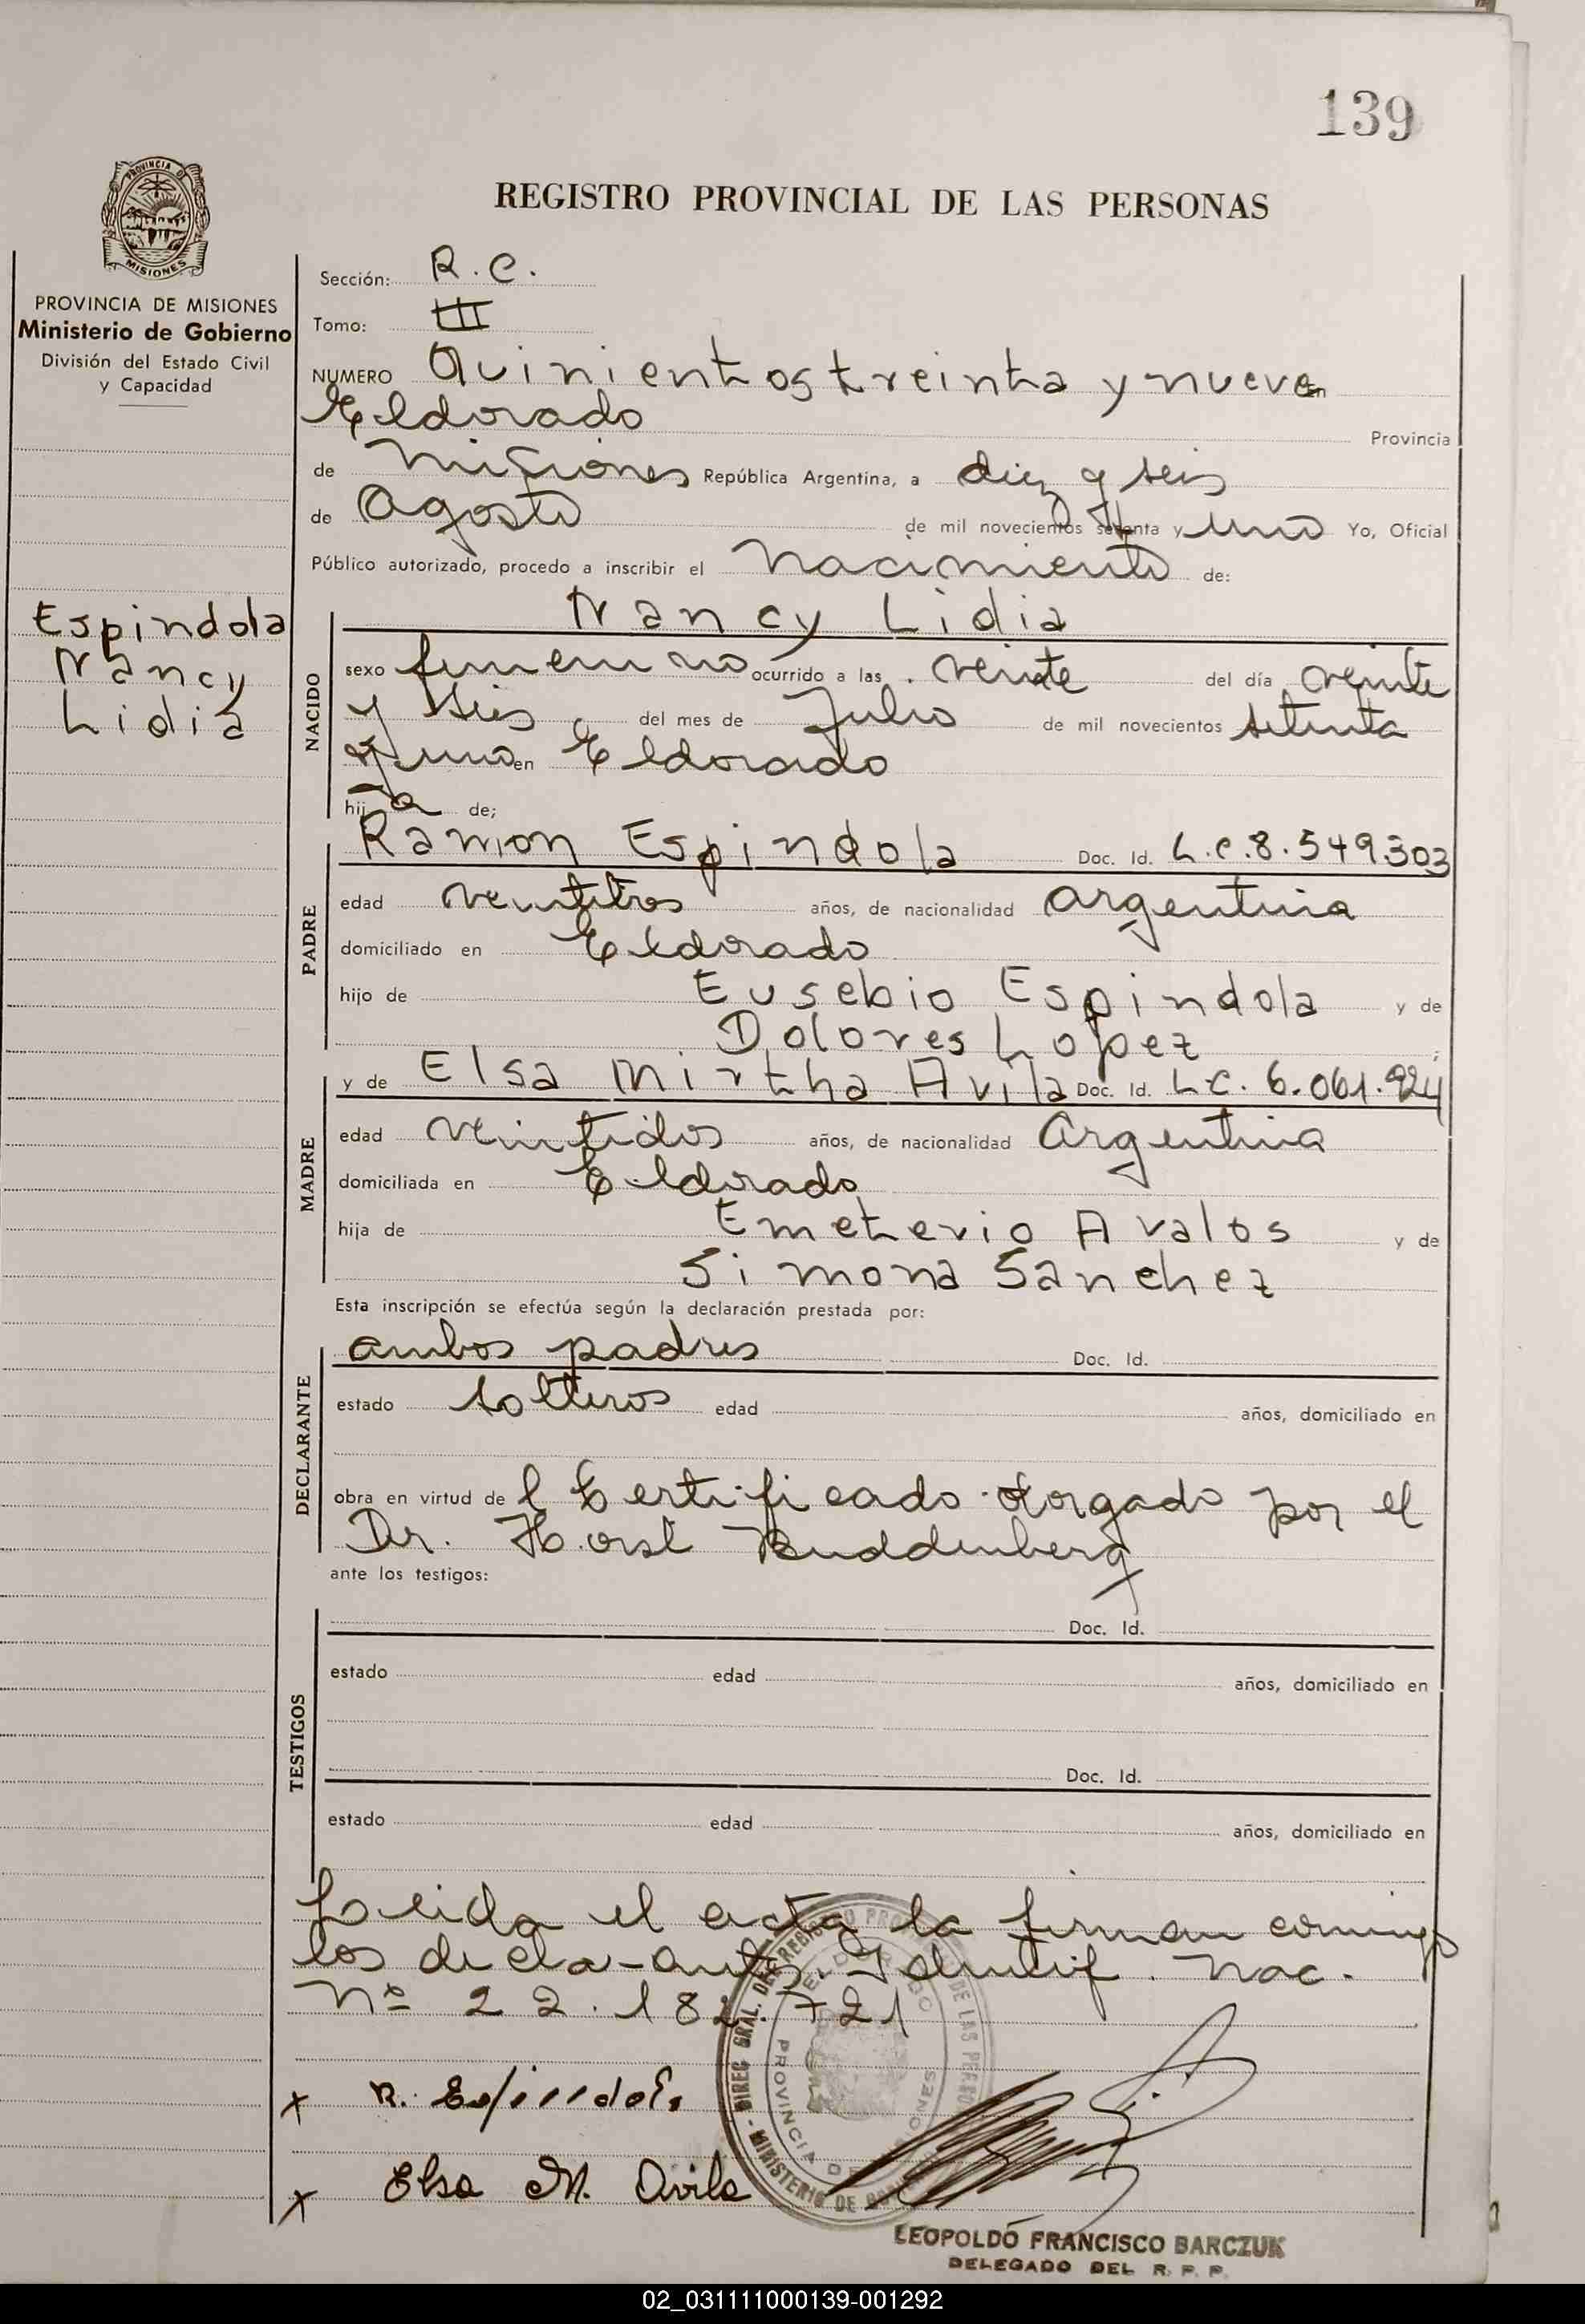 139
PROVINCIA DE MISIONES
REGISTRO PROVINCIAL DE LAS PERSONAS
PROVINCIA DE MISIONES
Ministerio de Gobierno
División del Estado Civil
y Capacidad
Sección: R.C.
Tomo: III
NUMERO Quinientos treinta y nueve en
Eldorado Provincia
de Misiones República Argentina, a diez y seis
de Agosto de mil novecientos setenta y uno Yo, Oficial
Público autorizado, procedo a inscribir el nacimiento de:
Espindola
Nancy
Lidia
NACIDO
Nancy Lidia
sexo femenino ocurrido a las veinte del día veinte
y seis del mes de Julio de mil novecientos setenta
y uno en Eldorado
hij a de;
PADRE
Ramon Espindola Doc. Id. L.e.8.549.303
edad veintitres años, de nacionalidad argentina
domiciliado en Eldorado
hijo de Eusebio Espindola y de
Dolores Lopez ;
MADRE
y de Elsa Mirtha Avila Doc. Id. L.C. 6.061.924
edad veintidos años, de nacionalidad Argentina
domiciliada en Eldorado
hija de Emeterio Avalos y de
Simona Sanchez
Esta inscripción se efectúa según la declaración prestada por:
DECLARANTE
ambos padres Doc. Id.
estado solteros edad años, domiciliado en
obra en virtud de l Certificado otorgado por el
Dr. Horst Buddenberg
ante los testigos:
TESTIGOS
Doc. Id.
estado edad años, domiciliado en
Doc. Id.
estado edad años, domiciliado en
Leida el acta la firman conmigo
los declarantes. Identif. Nac.
Nº 22.182.721
x R. Espindola
x Elsa M. Avila
MINISTERIO DE GOBIERNO - DIREC GRAL. DEL REGISTRO PROV. DE LAS PERSONAS
ELDORADO
PROVINCIA DE MISIONES
LEOPOLDO FRANCISCO BARCZUK
DELEGADO DEL R. P. P.
02_031111000139-001292